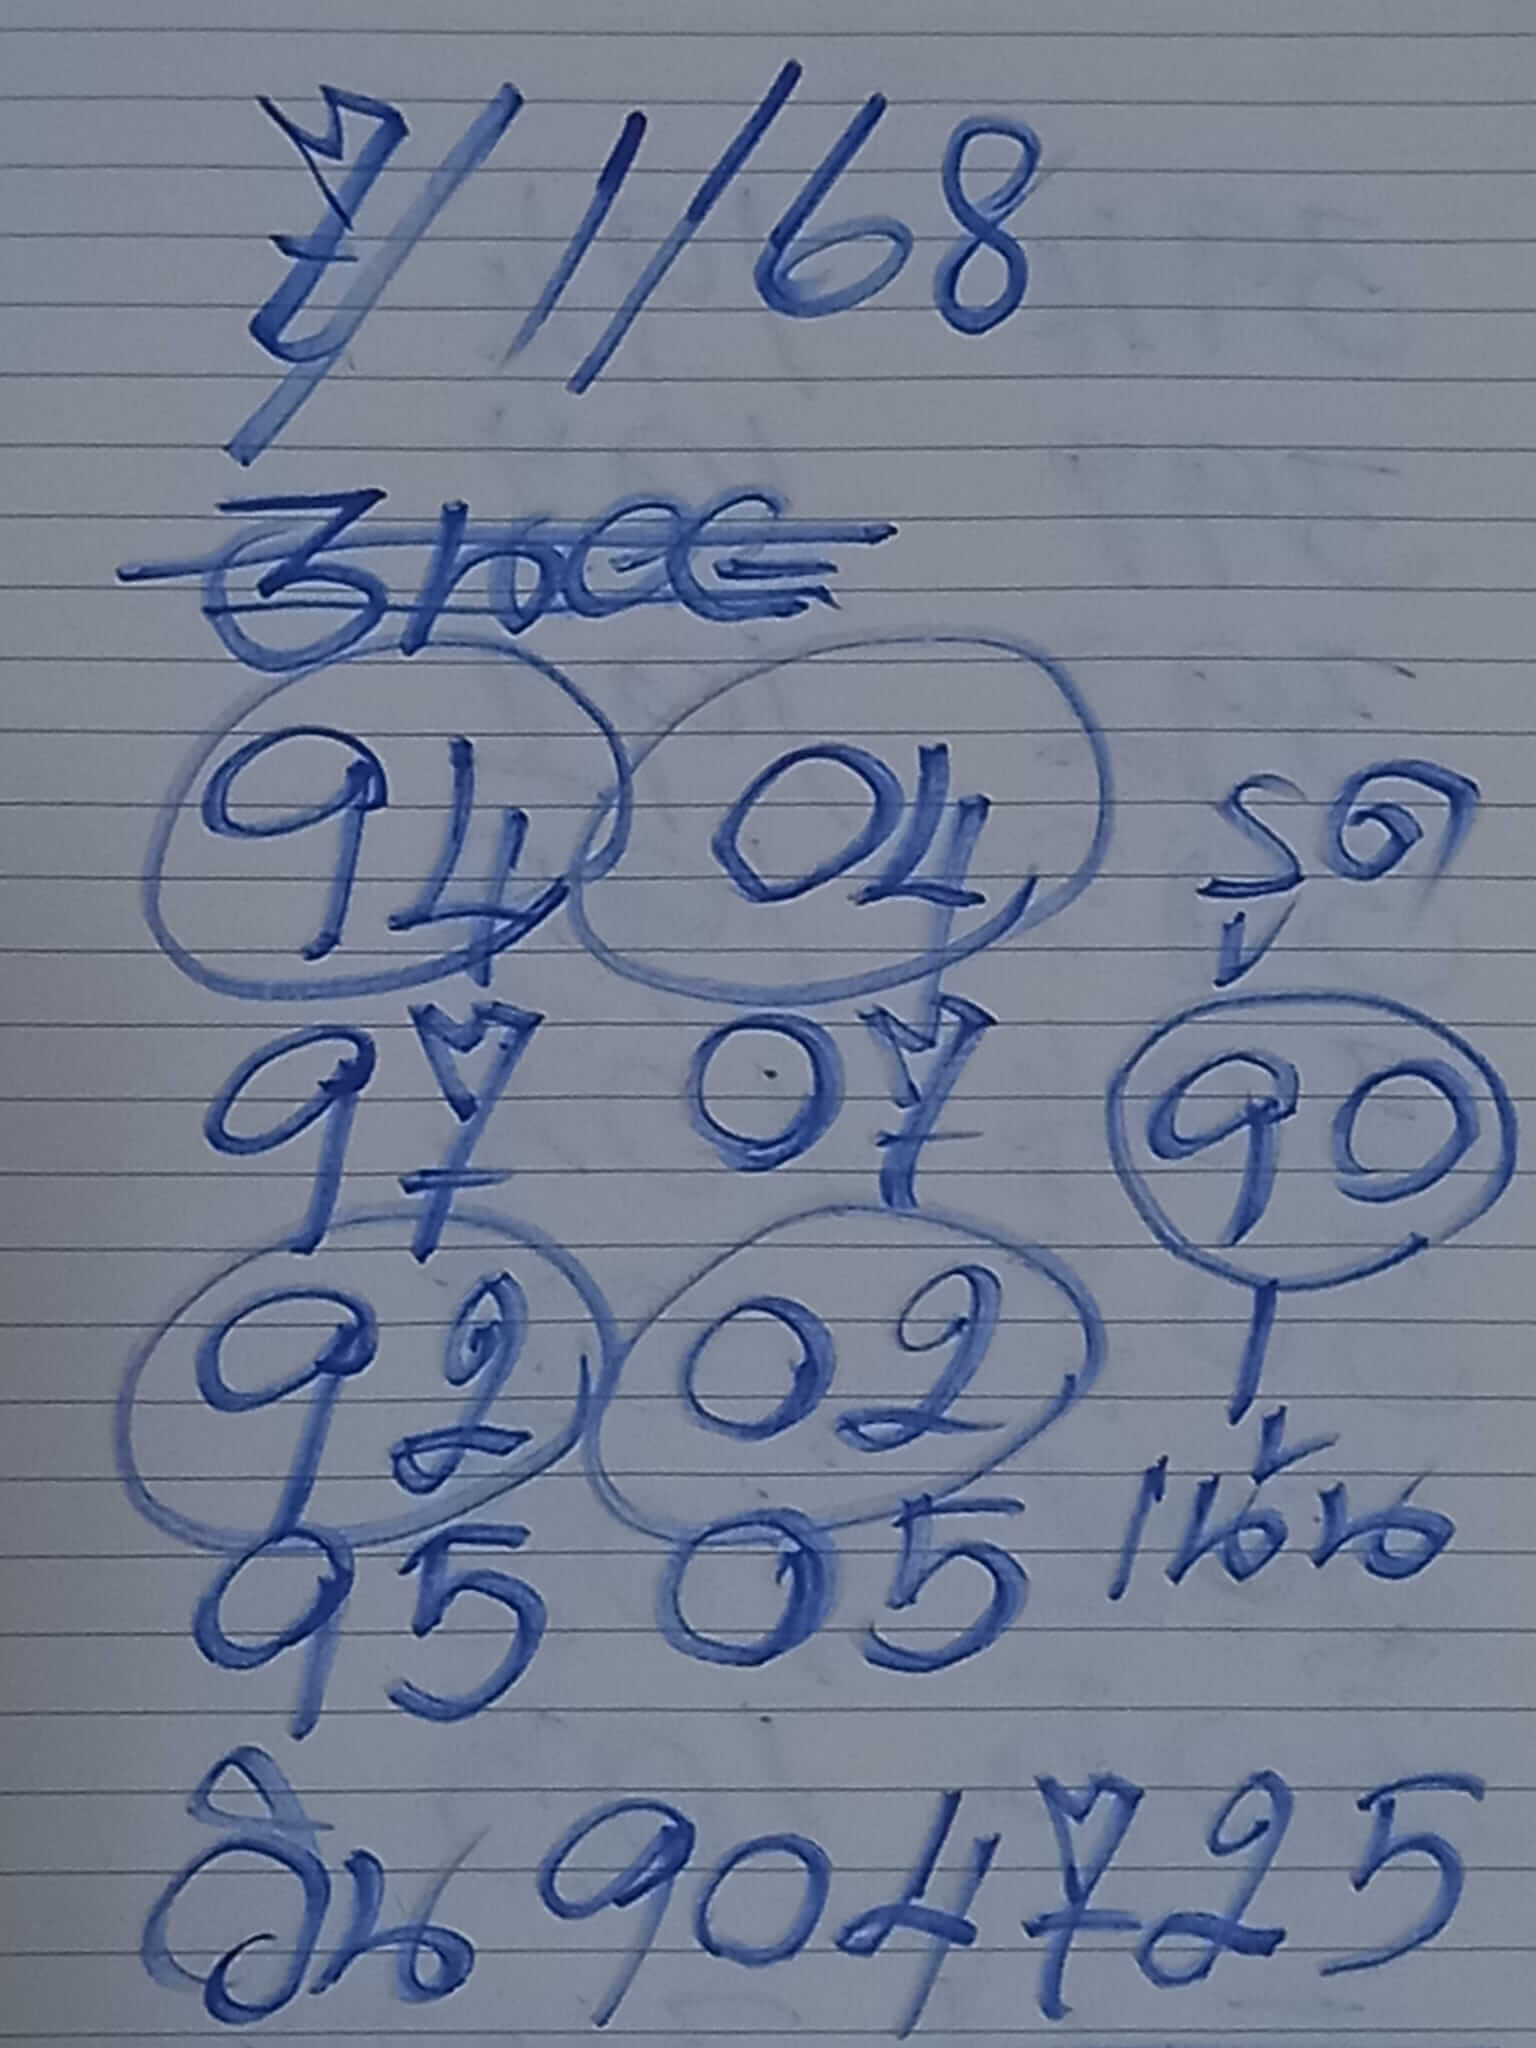 7/1/68
94 04 รูด
97 07 90
92 02
95 05 เน้น
วิน 904725